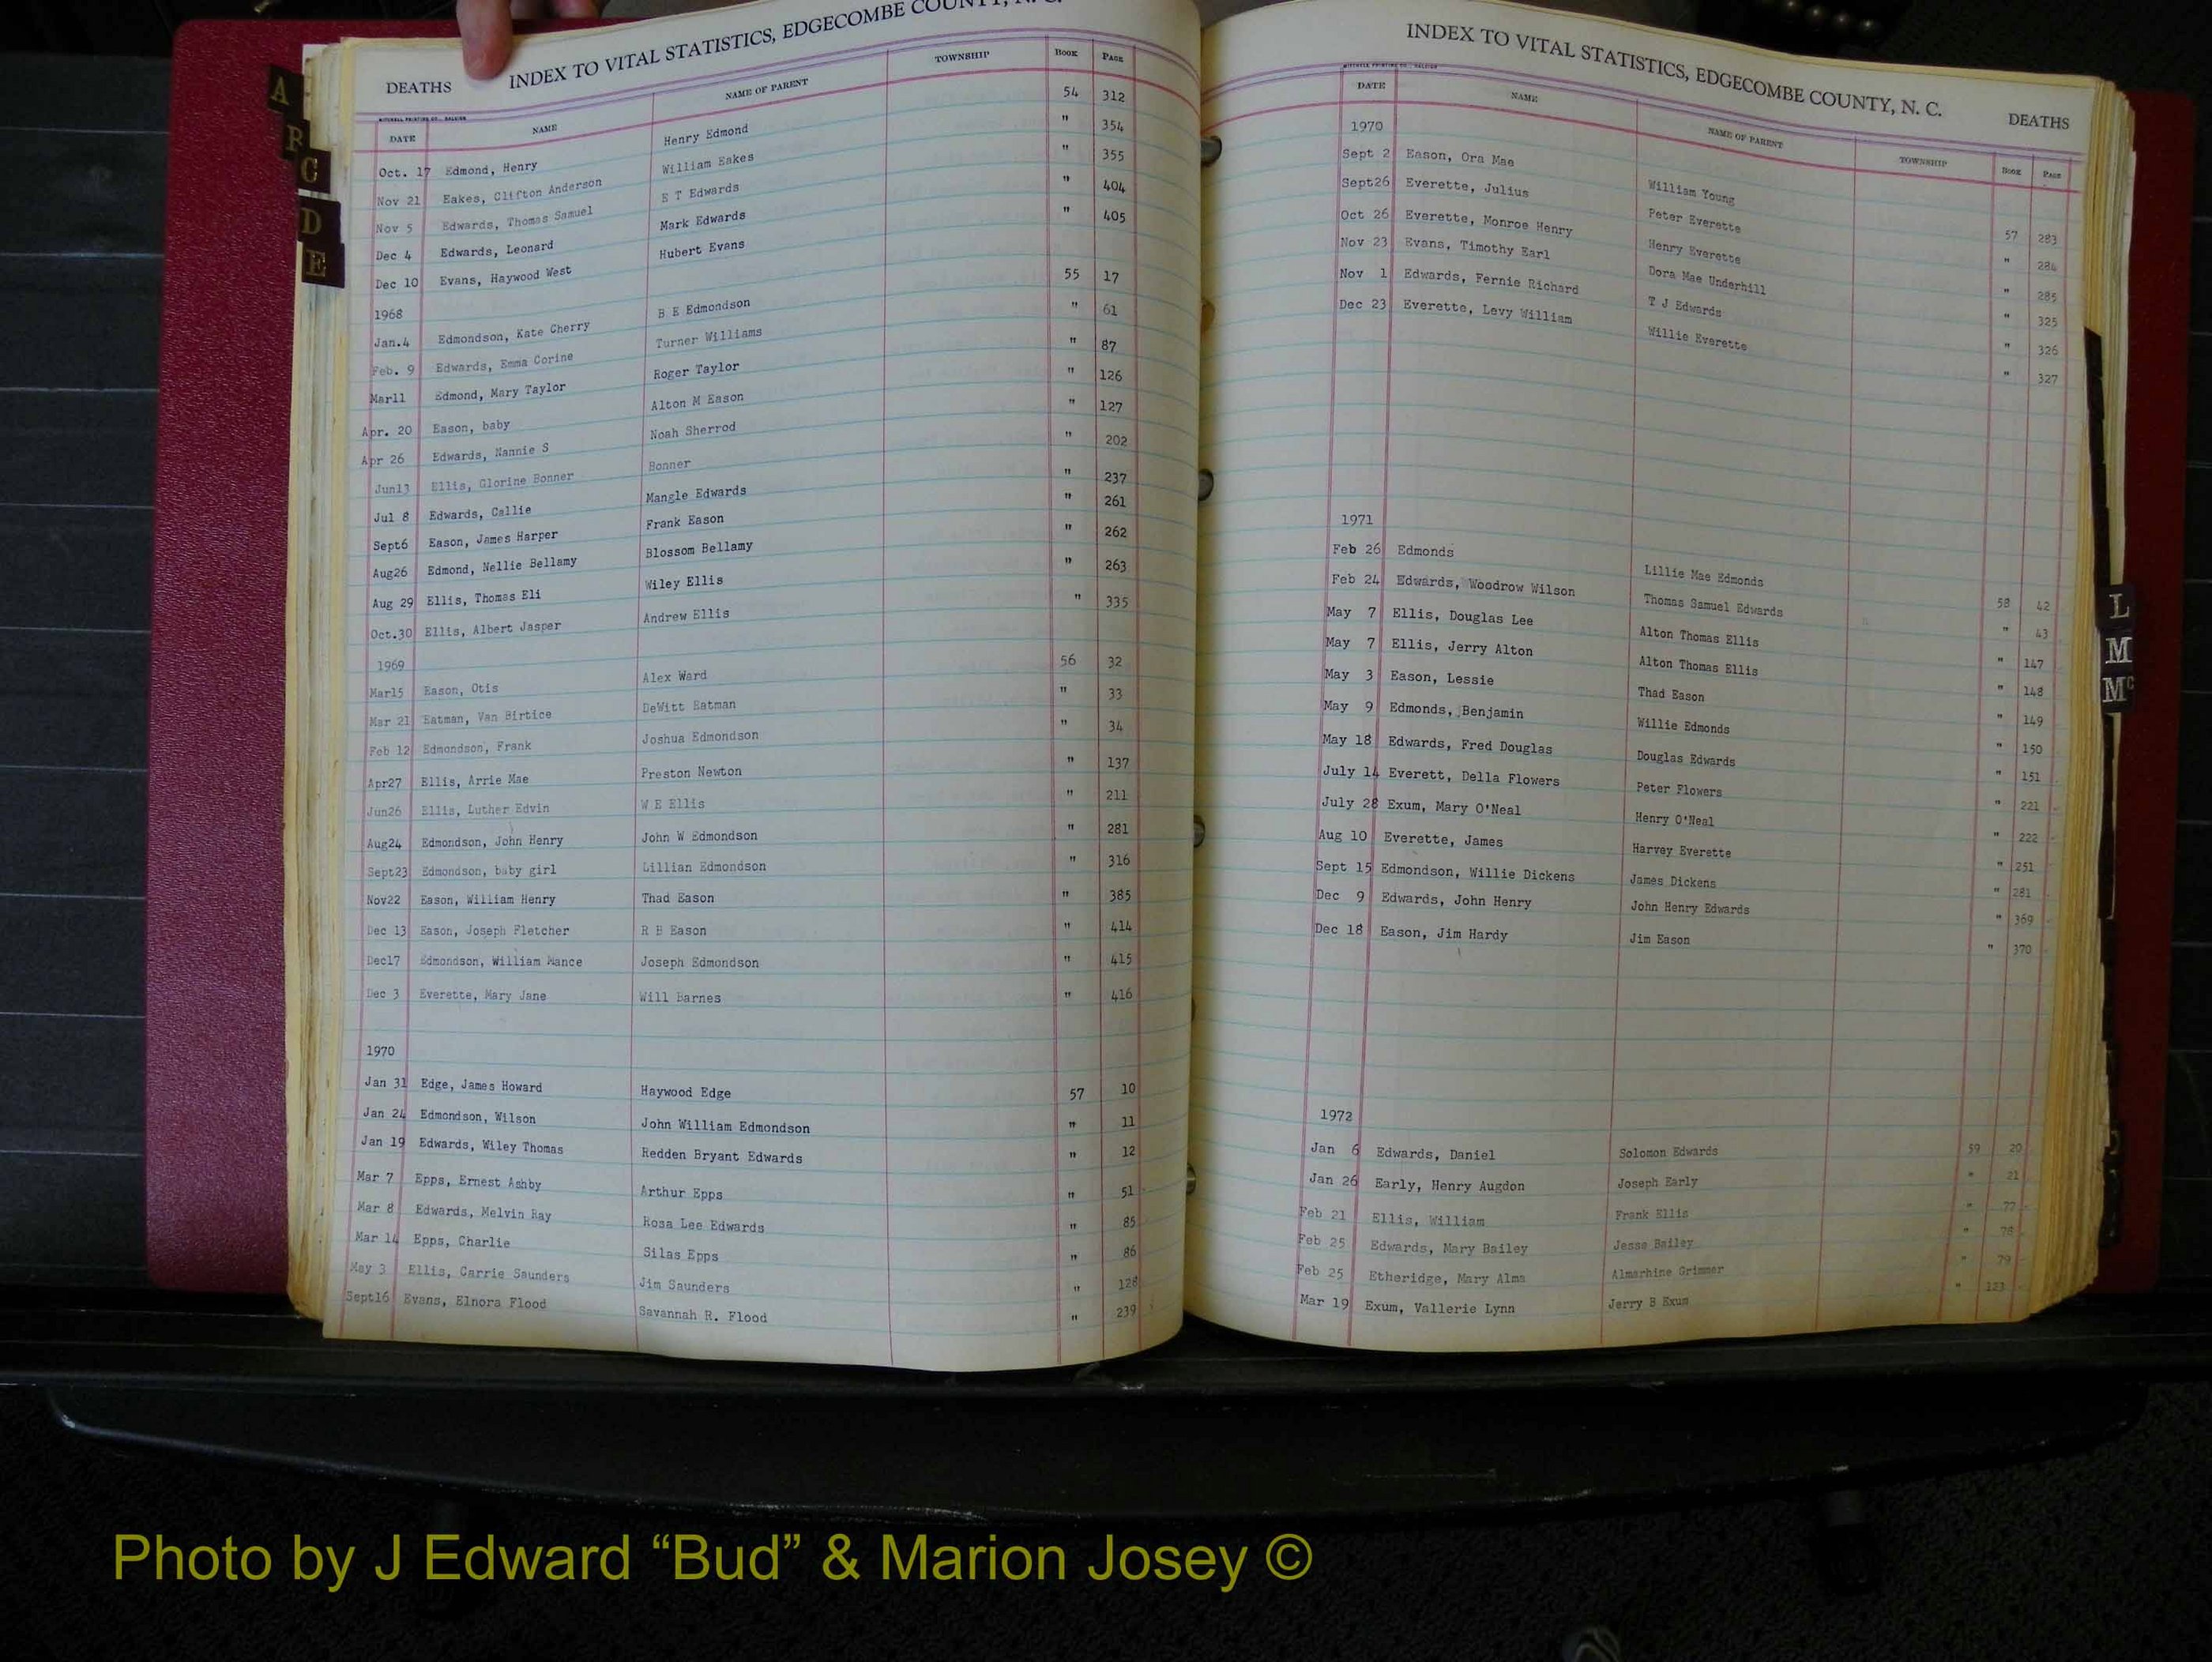 A
R
C
D
E
DEATHS INDEX TO VITAL STATISTICS, EDGECOMBE COUNTY, N. C.
MITCHELL PRINTING CO., RALEIGH
DATE NAME NAME OF PARENT TOWNSHIP BOOK PAGE
Oct. 17 Edmond, Henry Henry Edmond 54 312
Nov 21 Eakes, Clifton Anderson William Eakes " 354
Nov 5 Edwards, Thomas Samuel E T Edwards " 355
Dec 4 Edwards, Leonard Mark Edwards " 404
Dec 10 Evans, Haywood West Hubert Evans " 405
1968
Jan.4 Edmondson, Kate Cherry B E Edmondson 55 17
Feb. 9 Edwards, Emma Corine Turner Williams " 61
Mar11 Edmond, Mary Taylor Roger Taylor " 87
Apr. 20 Eason, baby Alton M Eason " 126
Apr 26 Edwards, Nannie S Noah Sherrod " 127
Jun13 Ellis, Glorine Bonner Bonner " 202
Jul 8 Edwards, Callie Mangle Edwards " 237
Sept6 Eason, James Harper Frank Eason " 261
Aug26 Edmond, Nellie Bellamy Blossom Bellamy " 262
Aug 29 Ellis, Thomas Eli Wiley Ellis " 263
Oct.30 Ellis, Albert Jasper Andrew Ellis " 335
1969
Mar15 Eason, Otis Alex Ward 56 32
Mar 21 Eatman, Van Birtice DeWitt Eatman " 33
Feb 12 Edmondson, Frank Joshua Edmondson " 34
Apr27 Ellis, Arrie Mae Preston Newton " 137
Jun26 Ellis, Luther Edvin W E Ellis " 211
Aug24 Edmondson, John Henry John W Edmondson " 281
Sept23 Edmondson, baby girl Lillian Edmondson " 316
Nov22 Eason, William Henry Thad Eason " 385
Dec 13 Eason, Joseph Fletcher R B Eason " 414
Dec17 Edmondson, William Mance Joseph Edmondson " 415
Dec 3 Everette, Mary Jane Will Barnes " 416
1970
Jan 31 Edge, James Howard Haywood Edge 57 10
Jan 24 Edmondson, Wilson John William Edmondson " 11
Jan 19 Edwards, Wiley Thomas Redden Bryant Edwards " 12
Mar 7 Epps, Ernest Ashby Arthur Epps " 51
Mar 8 Edwards, Melvin Ray Rosa Lee Edwards " 85
Mar 14 Epps, Charlie Silas Epps " 86
May 3 Ellis, Carrie Saunders Jim Saunders " 128
Sept16 Evans, Elnora Flood Savannah R. Flood " 239
INDEX TO VITAL STATISTICS, EDGECOMBE COUNTY, N. C. DEATHS
MITCHELL PRINTING CO., RALEIGH
DATE NAME NAME OF PARENT TOWNSHIP BOOK PAGE
1970
Sept 2 Eason, Ora Mae William Young 57 283
Sept26 Everette, Julius Peter Everette " 284
Oct 26 Everette, Monroe Henry Henry Everette " 285
Nov 23 Evans, Timothy Earl Dora Mae Underhill " 325
Nov 1 Edwards, Fernie Richard T J Edwards " 326
Dec 23 Everette, Levy William Willie Everette " 327
1971
Feb 26 Edmonds Lillie Mae Edmonds 58 42
Feb 24 Edwards, Woodrow Wilson Thomas Samuel Edwards " 43
May 7 Ellis, Douglas Lee Alton Thomas Ellis " 147
May 7 Ellis, Jerry Alton Alton Thomas Ellis " 148
May 3 Eason, Lessie Thad Eason " 149
May 9 Edmonds, Benjamin Willie Edmonds " 150
May 18 Edwards, Fred Douglas Douglas Edwards " 151
July 14 Everett, Della Flowers Peter Flowers " 221
July 28 Exum, Mary O'Neal Henry O'Neal " 222
Aug 10 Everette, James Harvey Everette " 251
Sept 15 Edmondson, Willie Dickens James Dickens " 281
Dec 9 Edwards, John Henry John Henry Edwards " 369
Dec 18 Eason, Jim Hardy Jim Eason " 370
1972
Jan 6 Edwards, Daniel Solomon Edwards 59 20
Jan 26 Early, Henry Augdon Joseph Early " 21
Feb 21 Ellis, William Frank Ellis " 77
Feb 25 Edwards, Mary Bailey Jesse Bailey " 78
Feb 25 Etheridge, Mary Alma Almarhine Grimmer " 79
Mar 19 Exum, Vallerie Lynn Jerry B Exum " 123
L
M
Mc
Photo by J Edward “Bud” & Marion Josey ©